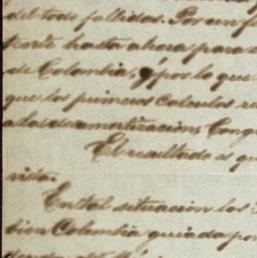 del todo fallidas. Por un f
tente hasta ahora para
de Colombia, y por lo que
que los primeros calculos re
a las desamortizacions Cong
El resultado es q
vista.
En tal situacion los
bien Colombia guiada por